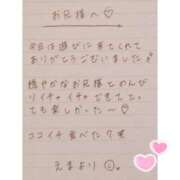 お兄様へ♡
今日は遊びに来てくれて
ありがとうございました！
穏やかなお兄様とのんび
りイチャイチャできて、と
ても楽しかった〜♡
ココイチ食べたくなる
えまより☺